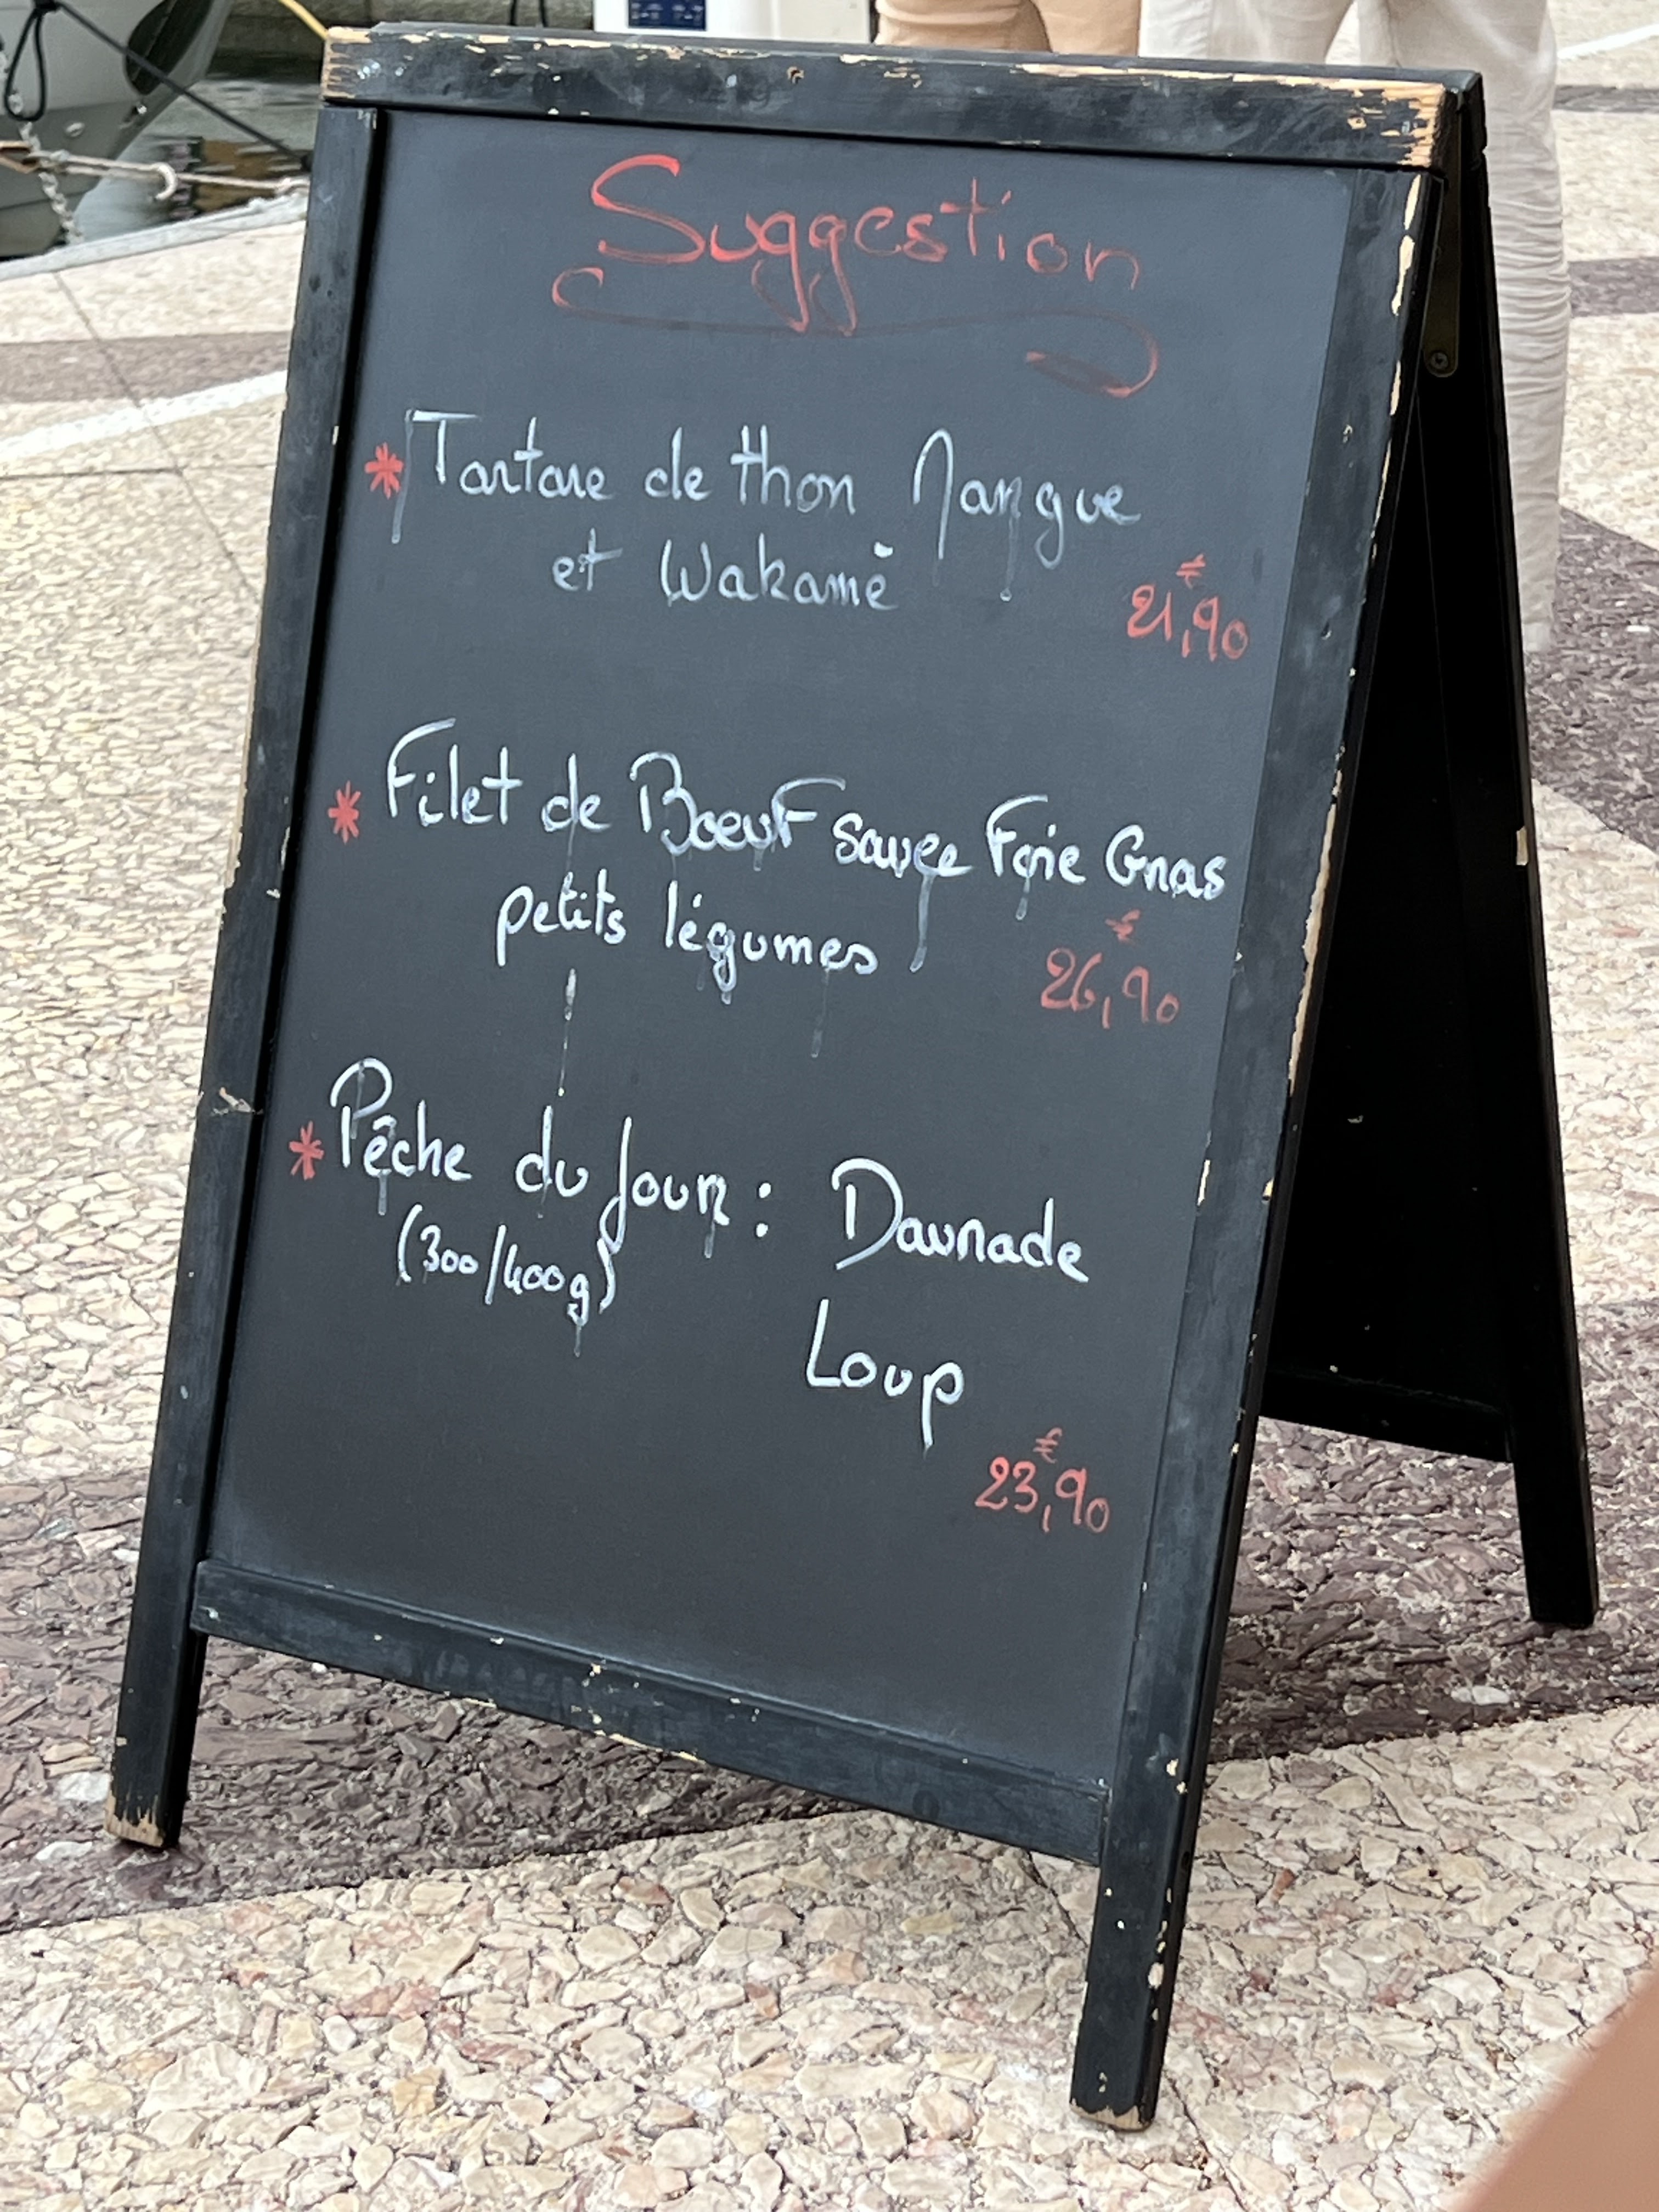 Suggestion
* Tartare de thon Mangue
et Wakamé
€
21,90
* Filet de Boeuf sauce Foie Gras
petits légumes
€
26,90
* Pêche du Jour : Daurade
(300/400g)
Loup
€
23,90